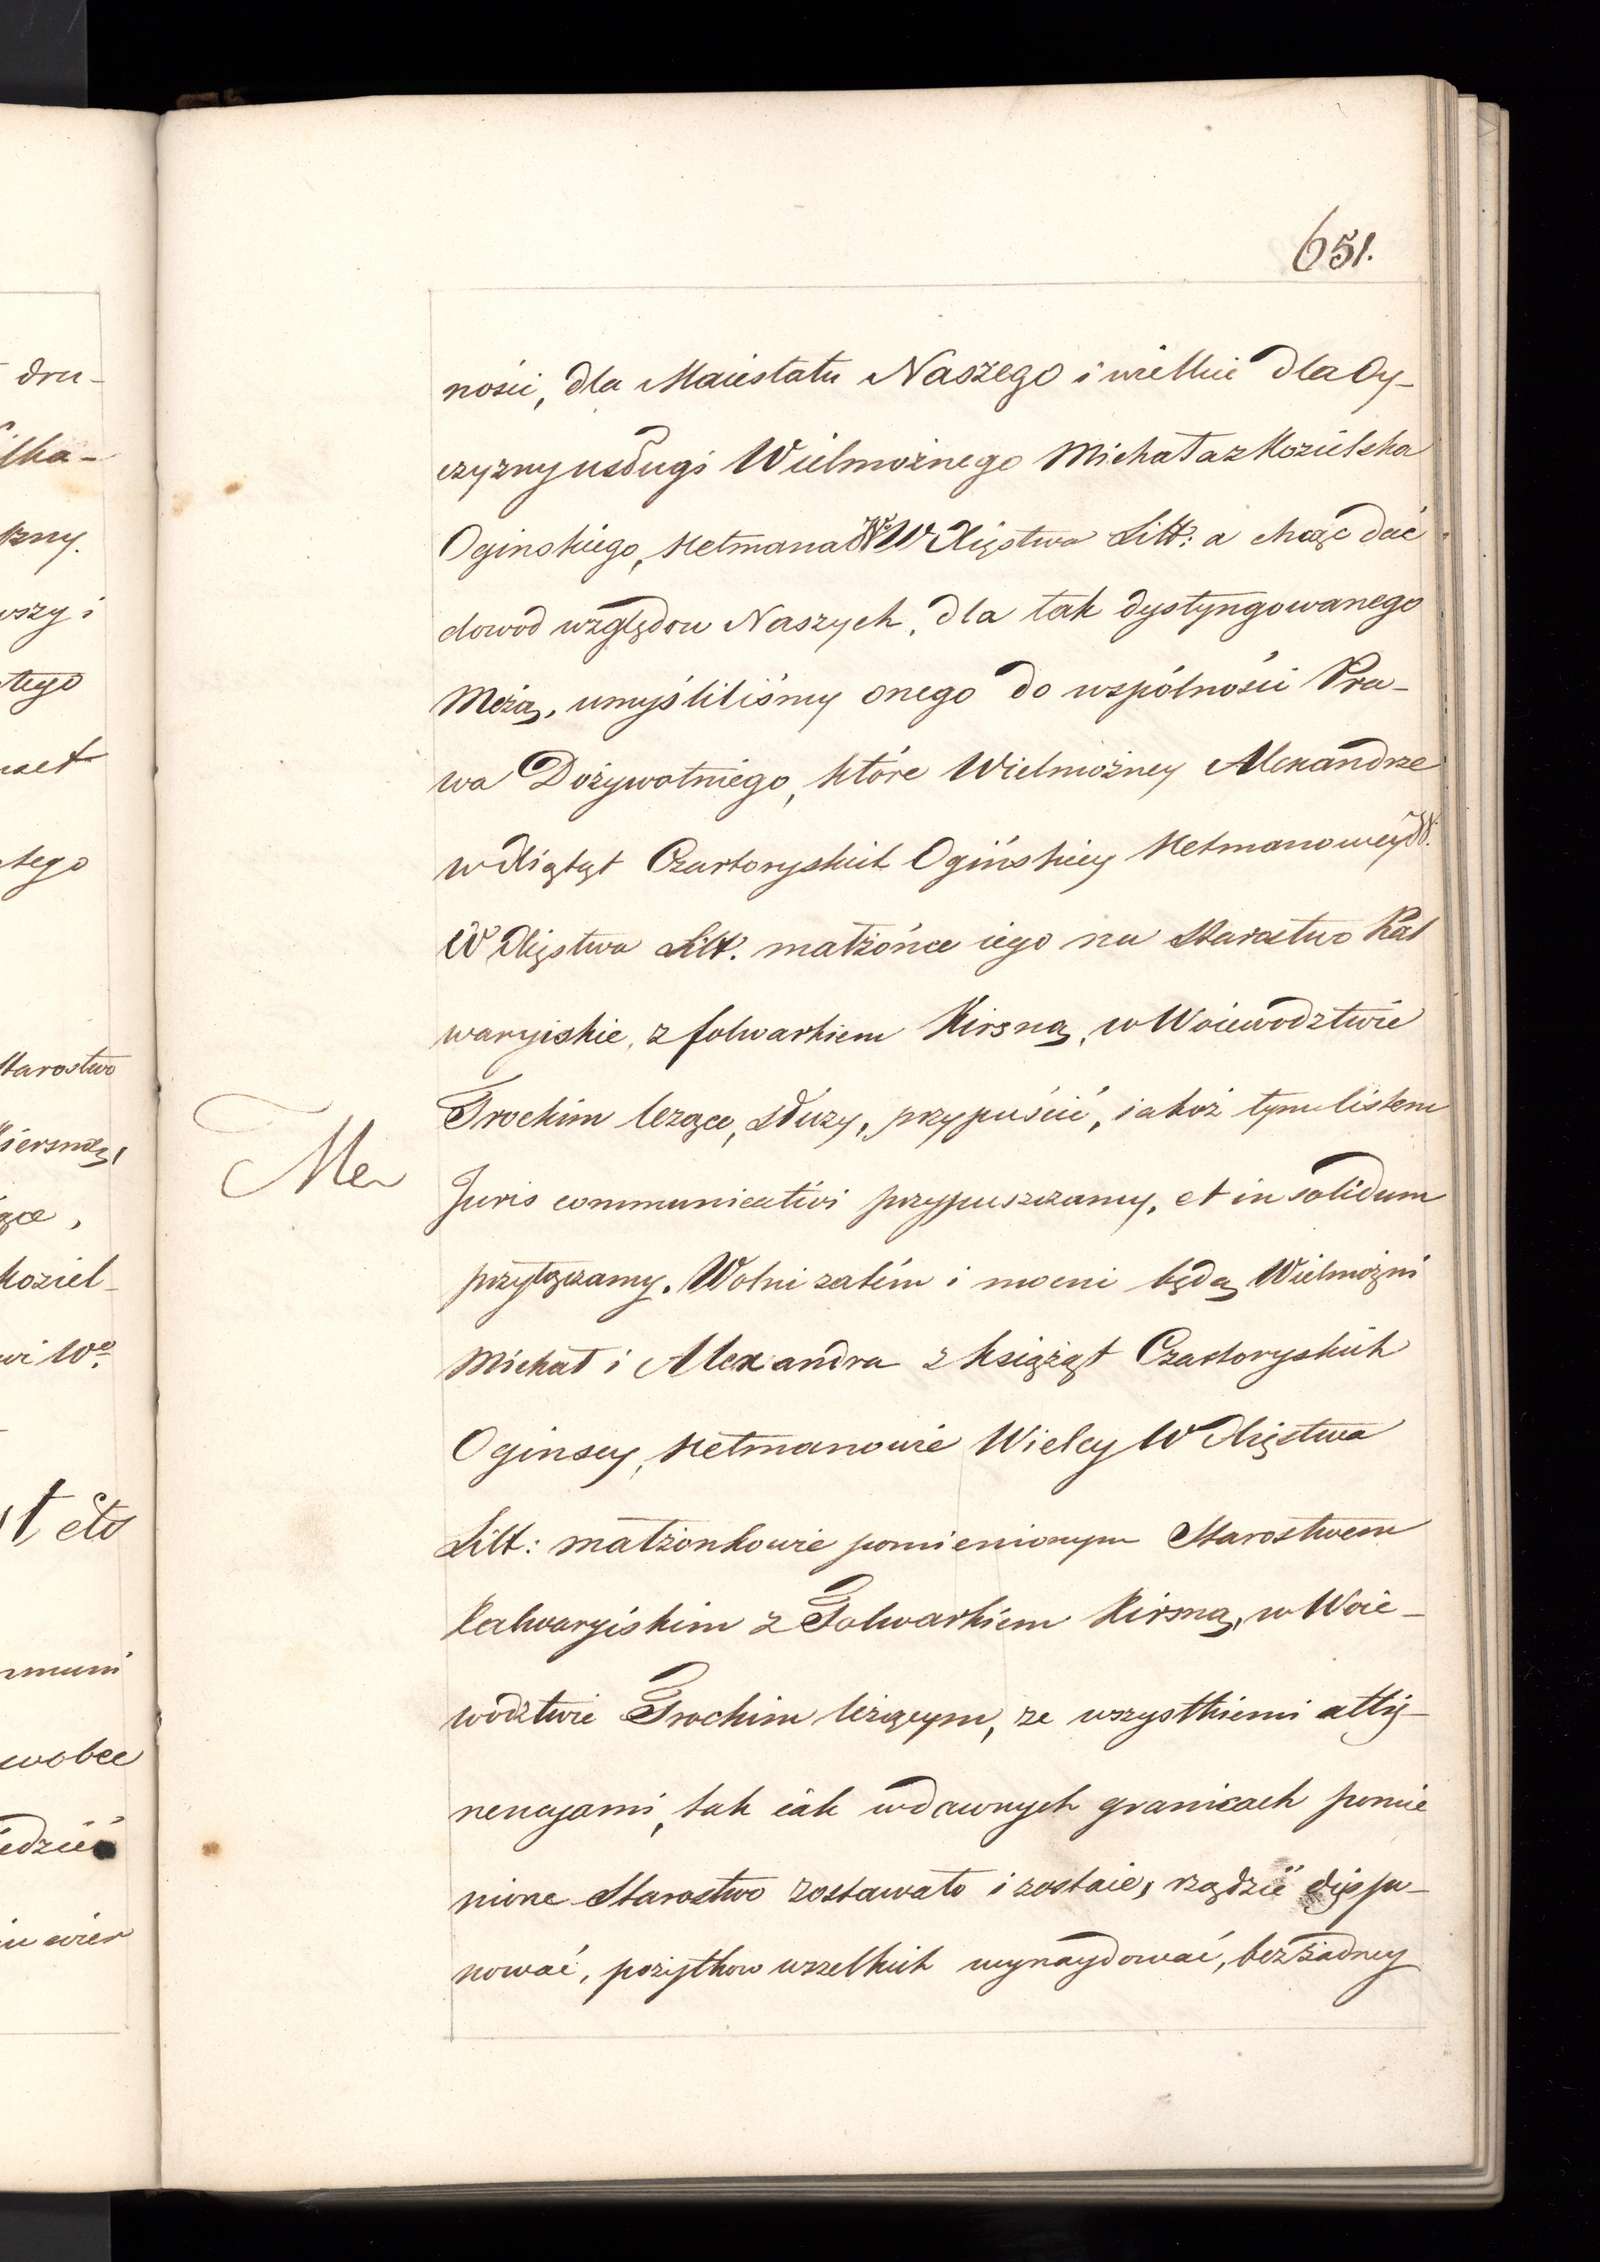 651.
ności, dla Maiestatu Naszego i wielkie dla Oy-
czyzny usługi Wielmożnego Michała z Kozielska
Oginskiego, Hetmana W. W Xięstwa Litt: a chcąc dać
dowod względow Naszych, dla tak dystyngowanego
Męża, umyśliliśmy onego do wspólności Pra-
wa Dożywotniego, które Wielmożney Alexandrze
w Xiążąt Czartoryskich Ogińskiey Hetmanowey W.
W Xięstwa Litt. małżonce iego na Starostwo Kal
waryiskie, z folwarkiem Kirsną, w Woiewodztwie
Trockim leżące, służy, przypuścić, iakoż tym listem
Juris communicativi przypuszczamy, et in solidum
przyłączamy. Wolni zatém i mocni będą Wielmożni
Michał i Alexandra z Książąt Czartoryskich
Oginscy, Hetmanowie Wielcy W Xięstwa
Litt: małżonkowie pomienionym Starostwem
Kalwaryiskim z Folwarkiem Kirsną, w Woie-
wodztwie Trockim leżącym, ze wszystkiemi atty-
nencyami, tak iak w dawnych granicach pomie
nione Starostwo zostawało i zostaie, rządzić dyspo-
nować, pożytkow wszelkich wynaydować, bez żadney
dru-
zny.
wszy i
tego
tego
Starostwo
Koziel-
wi Wo.
wobec